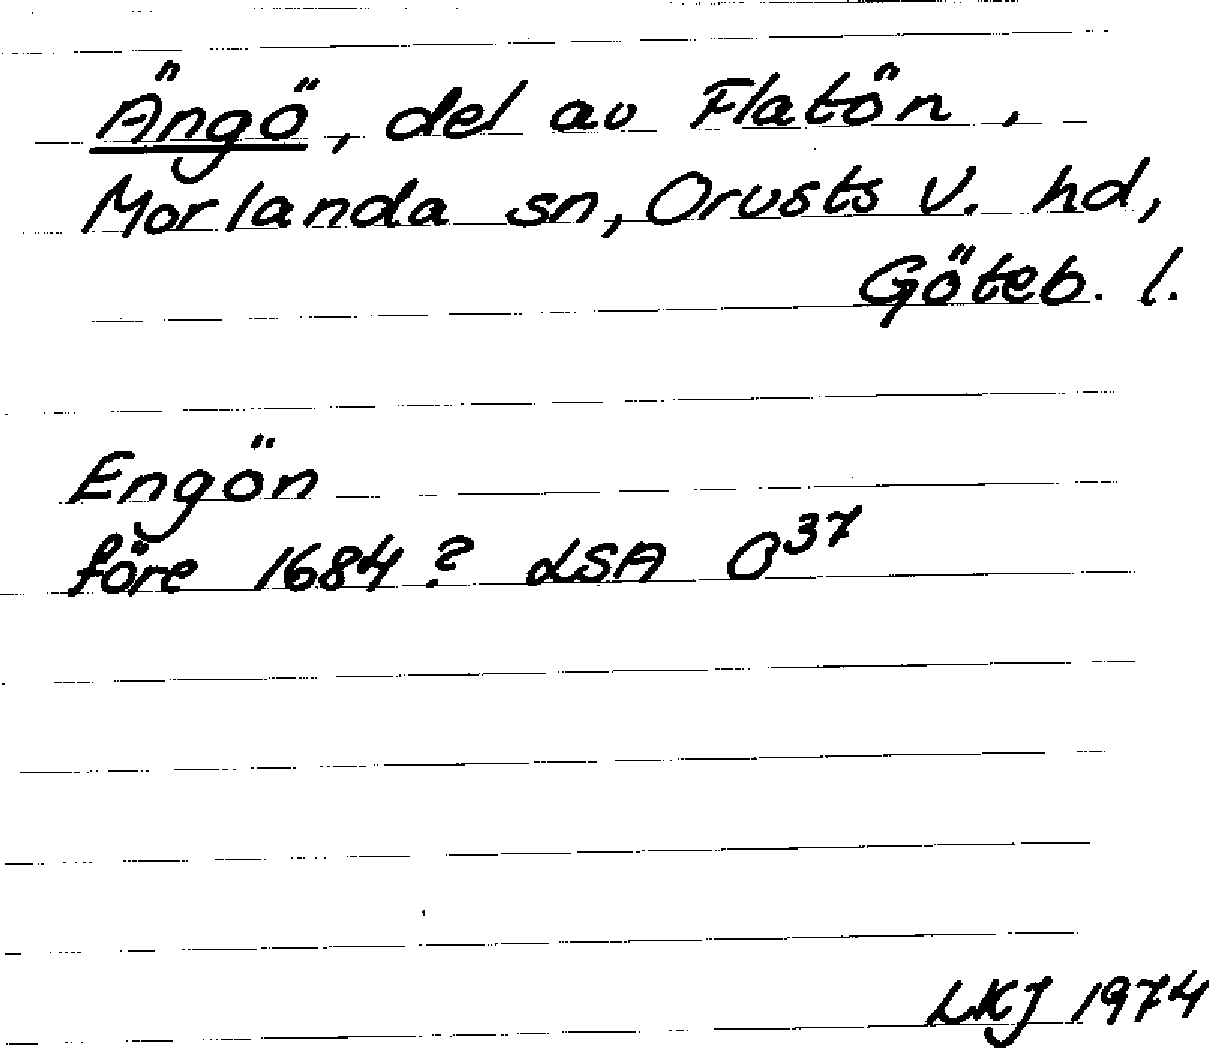 Ängö, del av Flatön,
Morlanda sn, Orusts V. hd,
Göteb. l.
Engön
före 1684? LSA O³⁷
LKJ 1974